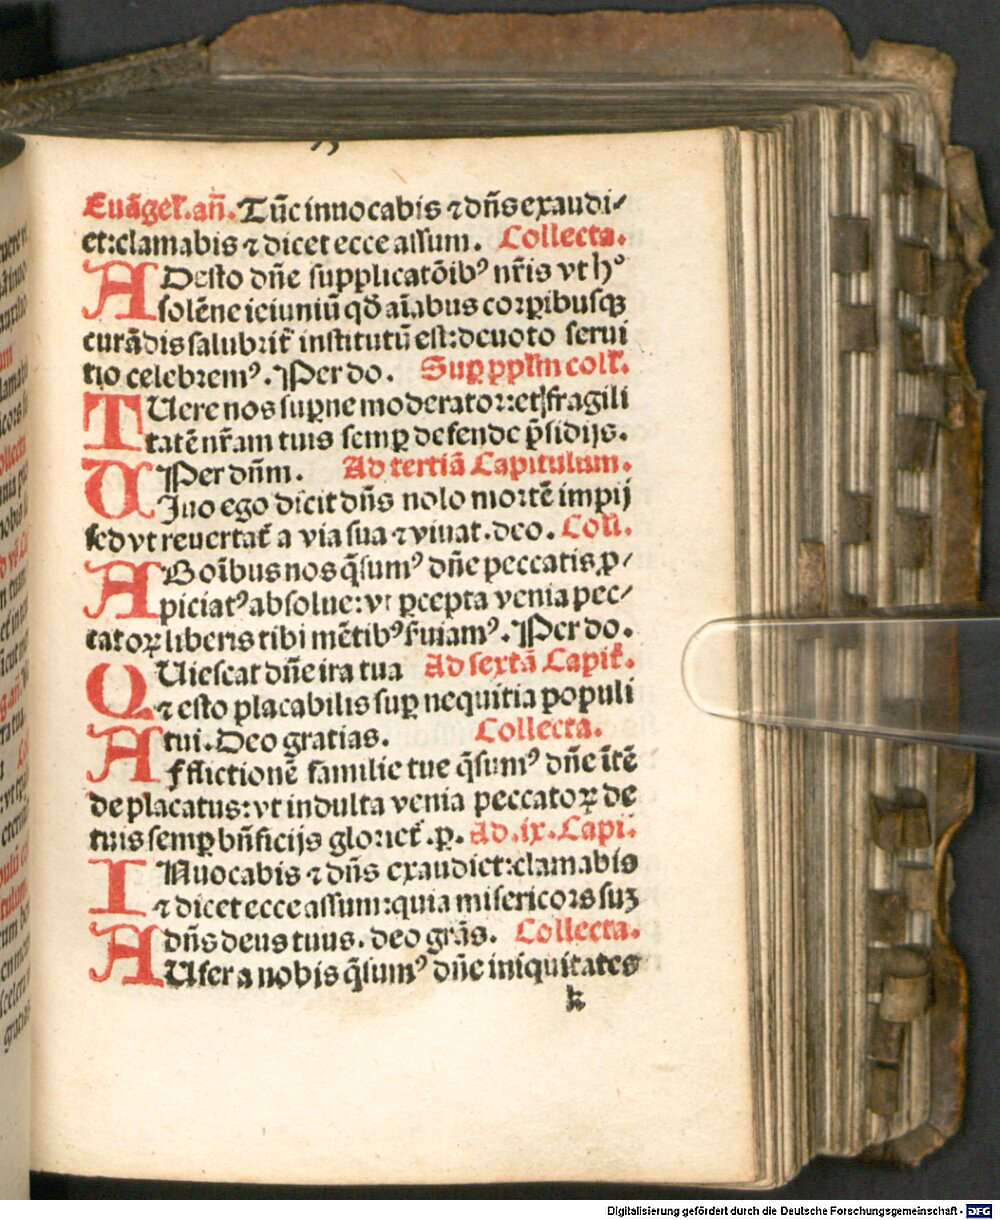 Euāgeł.an̄. Tūc inuocabis ⁊ dn̄s exaudi⸗
et:clamabis ⁊ dicet ecce assum. Collecta.
ADesto dn̄e supplicatōibꝰ nr̄is vt hꝰ
solēne ieiuniū qđ aīabus corꝑibusqꝫ
curādis salubriť institutū est:deuoto serui
tio celebremꝰ. Per do. Suꝑ ppl̄m coll̄.
TUere nos suꝑne moderator:et fragili
tatē nr̄am tuis semꝑ defende p̄sidijs.
Per dn̄m. Ad tertiā Capitulum.
UIuo ego dicit dn̄s nolo mortē impij
sed vt reuertať a via sua ⁊ viuat.deo. Coll̄.
ABoībus nos q̄sumꝰ dn̄e peccatis ꝓ⸗
piciatꝰ absolue:vt ꝑcepta venia pec⸗
catoꝝ liberis tibi mētibꝰ s̄uiamꝰ. Per do.
QUiescat dn̄e ira tua Ad sextā Capiť.
⁊ esto placabilis suꝑ nequitia populi
tui. Deo gratias. Collecta.
Afflictionē familie tue q̄sumꝰ dn̄e ītē
de placatus:vt indulta venia peccatoꝝ de
tuis semꝑ bn̄ficijs glorieť.p. Ad.ix.Capi.
INuocabis ⁊ dn̄s exaudiet:clamabis
⁊ dicet ecce assum:quia misericors suꝫ
dn̄s deus tuus. deo grās. Collecta.
AUfer a nobis q̄sumꝰ dn̄e iniquitates
k
Digitalisierung gefördert durch die Deutsche Forschungsgemeinschaft - DFG